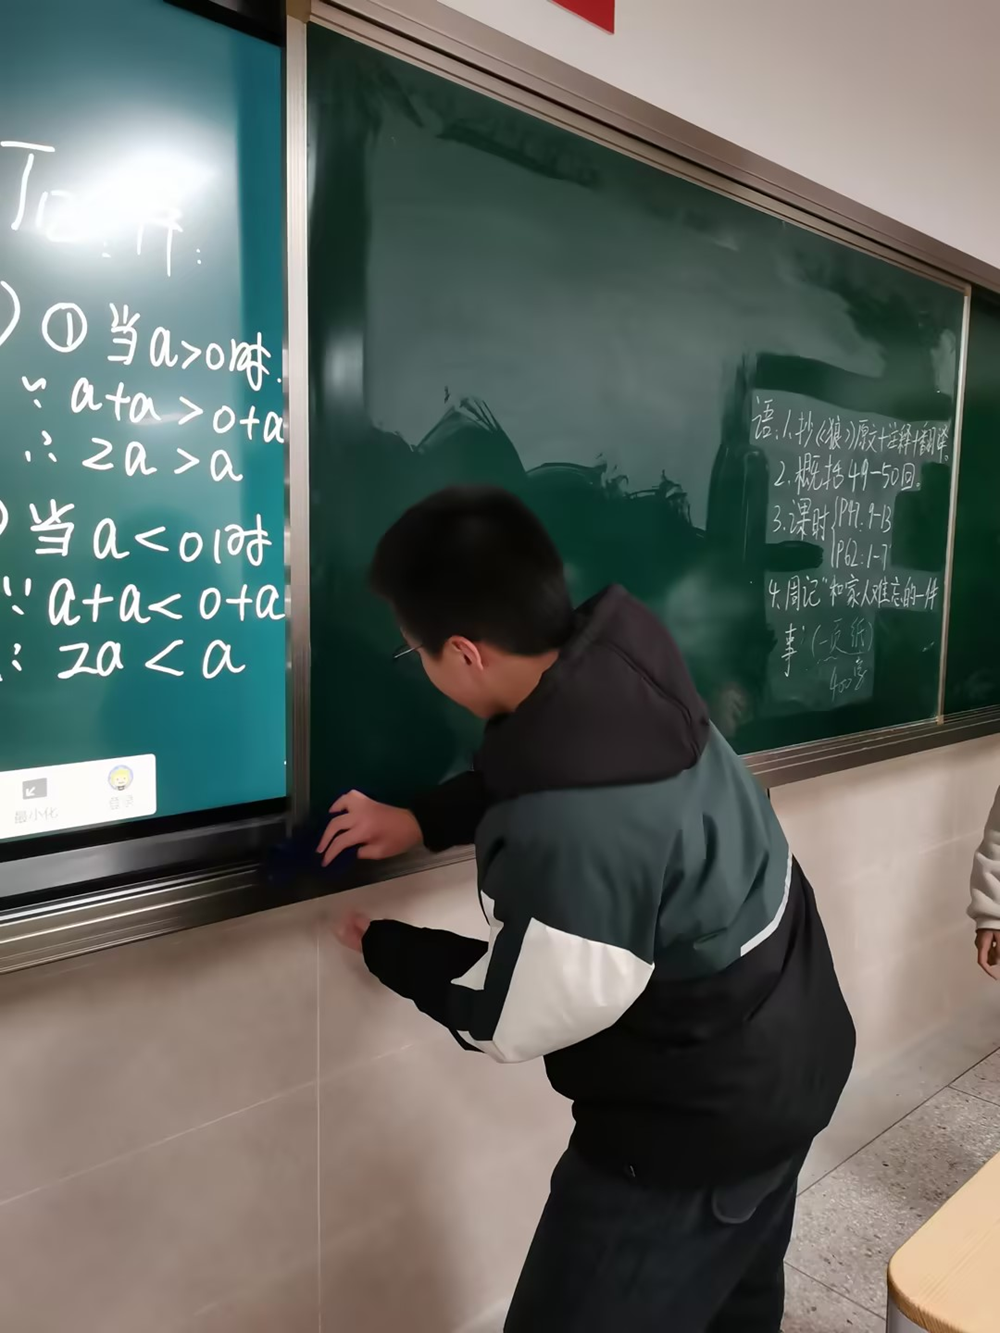 ① 当a>0时.
∵ a+a>0+a
∴ 2a>a
当a<0时
∵ a+a<0+a
∴ 2a<a
最小化
登录
语:1.抄《狼》原文+注释+翻译。
2.概括49-50回。
3.课时{P47.9-13
P62:1-7
4.周记“和家人难忘的一件
事”(一页纸)
400字